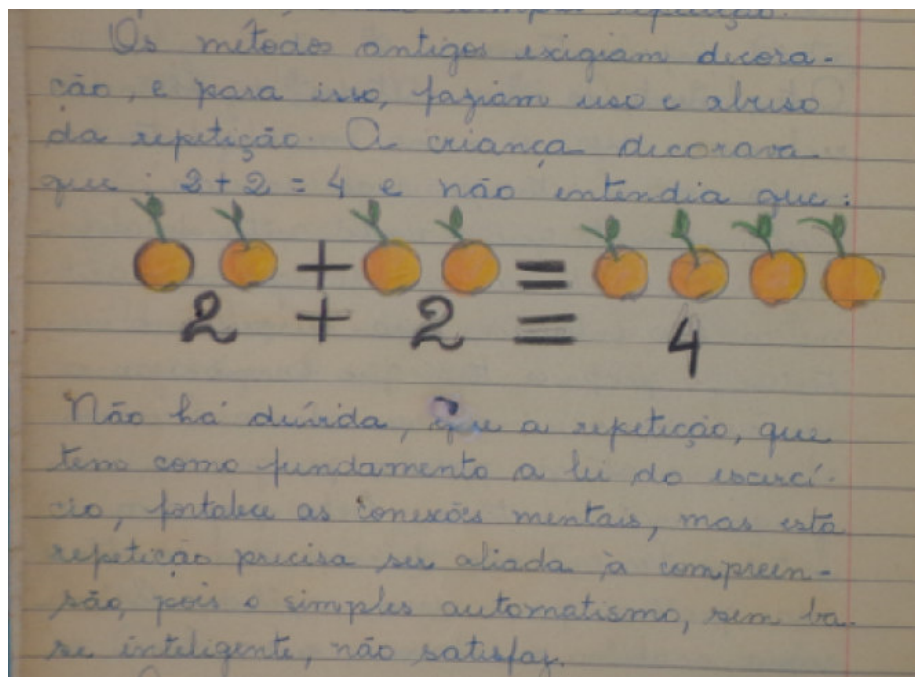 simples repetição.
Os métodos antigos exigiam decora-
ção, e para isso, faziam uso e abuso
da repetição. A criança decorava
que: 2 + 2 = 4 e não entendia que:
+ =
2 + 2 = 4
Não há dúvida, que a repetição, que
tem como fundamento a lei do exercí-
cio, fortalece as conexões mentais, mas esta
repetição precisa ser aliada à compreen-
são, pois o simples automatismo, sem ba-
se inteligente, não satisfaz.